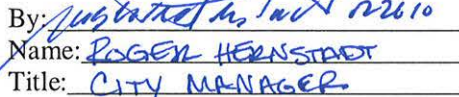 By:
Name: ROGER HERNSTADT
Title: CITY MANAGER